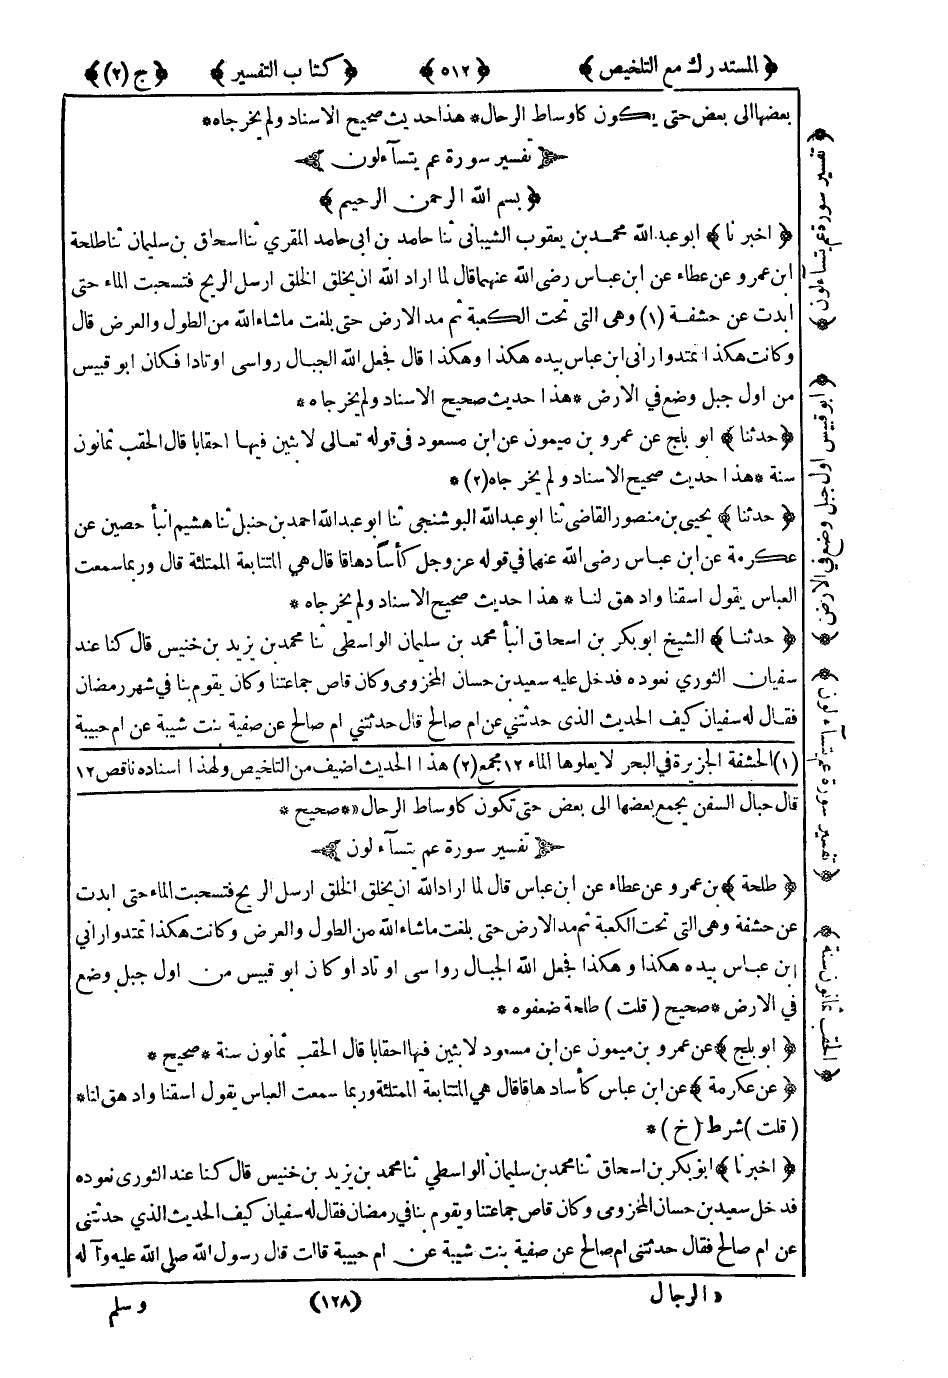 ﴿ المستدرك مع التلخيص ﴾ ﴿ ٥١٢ ﴾ ﴿ كتاب التفسير ﴾ ﴿ ج (٢) ﴾
بعضها الى بعض حتى يكون كاوساط الرحال * هذا حديث صحيح الاسناد ولم يخرجاه *
تفسير سورة عم يتسآءلون
﴿ بسم الله الرحمن الرحيم ﴾
﴿ اخبرنا ﴾ ابو عبد الله محمد بن يعقوب الشيبانى ثنا حامد بن ابى حامد المقرى ثنا اسحاق بن سليمان ثنا طلحة
ابن عمرو عن عطاء عن ابن عباس رضى الله عنهما قال لما اراد الله ان يخلق الخلق ارسل الريح فتسحبت الماء حتى
ابدت عن حشفة (١) وهى التى تحت الكعبة ثم مد الارض حتى بلغت ماشاء الله من الطول والعرض قال
وكانت هكذا تمتد واراني ابن عباس بيده هكذا وهكذا قال فجعل الله الجبال رواسي اوتادا فكان ابو قبيس
من اول جبل وضع في الارض * هذا حديث صحيح الاسناد ولم يخرجاه *
﴿ حدثنا ﴾ ابو بلج عن عمرو بن ميمون عن ابن مسعود فى قوله تعالى لابثين فيها احقابا قال الحقب ثمانون
سنة * هذا حديث صحيح الاسناد ولم يخرجاه (٢) *
﴿ حدثنا ﴾ يحيى بن منصور القاضى ثنا ابو عبد الله البوشنجى ثنا ابو عبد الله احمد بن حنبل ثنا هشيم انبأ حصين عن
عكرمة عن ابن عباس رضى الله عنهما في قوله عز وجل كأسا دهاقا قال هي المتتابعة الممتلئة قال وربما سمعت
العباس يقول اسقنا وادهق لنا * هذا حديث صحيح الاسناد ولم يخرجاه *
﴿ حدثنا ﴾ الشيخ ابو بكر بن اسحاق انبأ محمد بن سليمان الواسطى ثنا محمد بن يزيد بن خنيس قال كنا عند
سفيان الثوري نعوده فدخل عليه سعيد بن حسان المخزومى وكان قاص جماعتنا وكان يقوم بنا في شهر رمضان
فقال له سفيان كيف الحديث الذى حدثتني عن ام صالح قال حدثتني ام صالح عن صفية بنت شيبة عن ام حبيبة
(١) الحشفة الجزيرة في البحر لا يعلوها الماء ١٢ مجمع (٢) هذا الحديث اضيف من التلخيص ولهذا اسناده ناقص ١٢
قال حبال السفن يجمع بعضها الى بعض حتى تكون كاوساط الرحال « * صحيح *
تفسير سورة عم يتسآءلون
﴿ طلحة ﴾ بن عمرو عن عطاء عن ابن عباس قال لما اراد الله ان يخلق الخلق ارسل الريح فتسحبت الماء حتى ابدت
عن حشفة وهى التى تحت الكعبة ثم مد الارض حتى بلغت ماشاء الله من الطول والعرض وكانت هكذا تمتد واراني
ابن عباس بيده هكذا وهكذا فجعل الله الجبال رواسى اوتاد اوكان ابو قبيس من اول جبل وضع
في الارض * صحيح ( قلت ) طلحة ضعفوه *
﴿ ابو بلج ﴾ عن عمرو بن ميمون عن ابن مسعود لابثين فيها احقابا قال الحقب ثمانون سنة * صحيح *
﴿ عن عكرمة ﴾ عن ابن عباس كأسا دهاقا قال هي المتتابعة الممتلئة وربما سمعت العباس يقول اسقنا وادهق لنا *
( قلت ) شرط ( خ ) *
﴿ اخبرنا ﴾ ابو بكر بن اسحاق ثنا محمد بن سليمان الواسطي ثنا محمد بن يزيد بن خنيس قال كنا عند الثورى نعوده
فدخل سعيد بن حسان المخزومى وكان قاص جماعتنا ويقوم بنا في رمضان فقال له سفيان كيف الحديث الذي حدثتنى
عن ام صالح فقال حدثتنى ام صالح عن صفية بنت شيبة عن ام حبيبة قالت قال رسول الله صلى الله عليه وآله
« الرجال (١٢٨) وسلم
﴿ تفسير سورة عم يتسآءلون ﴾
﴿ ابو قبيس اول جبل وضع في الارض ﴾
﴿ تفسير سورة عم يتسآءلون ﴾
﴿ الحقب ثمانون سنة ﴾